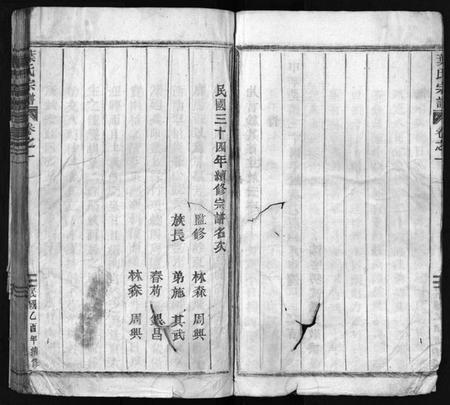 葉氏宗譜
卷之一
民國三十四年續修宗譜名次
監修 林森 周興
族長 弟施 其武
春荊 昌
林森 周興
葉氏宗譜
卷之一
民國乙酉年續修